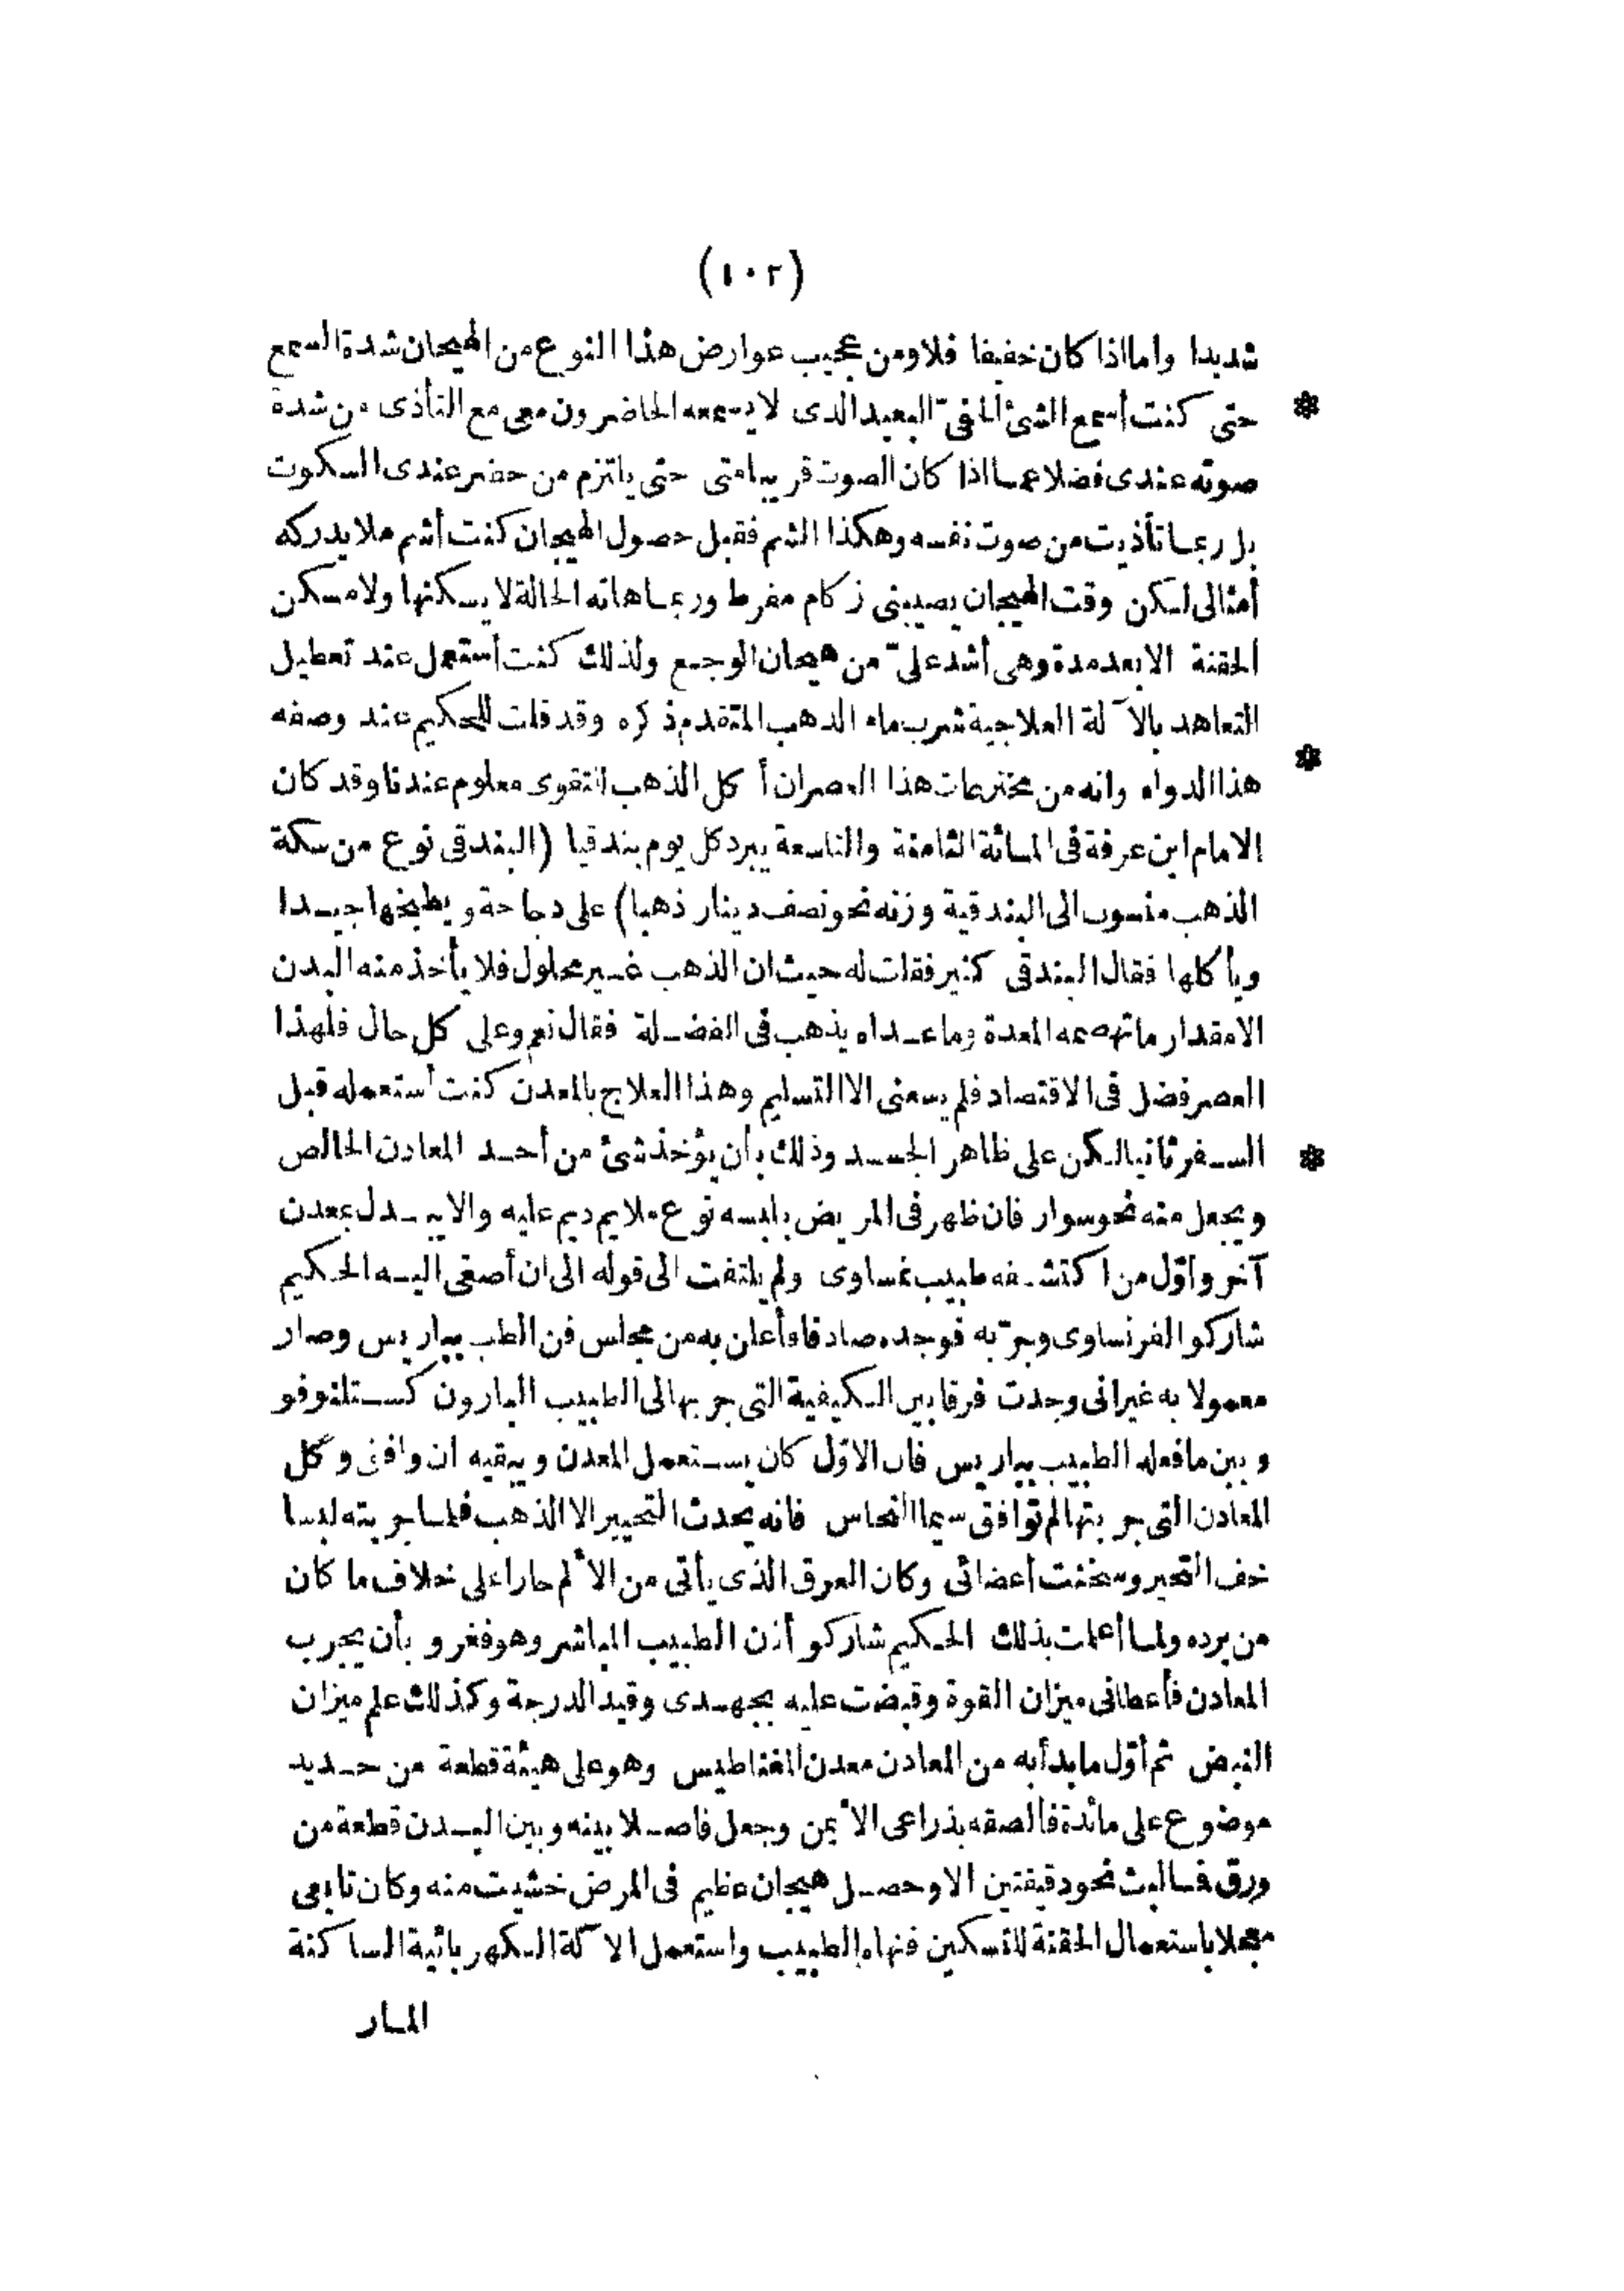 (١٠٢)
شديدا واما اذا كان خفيفا فلا ومن عجيب عوارض هذا النوع من الهيجان شدة السمع
* حتى كنت أسمع الشئ الخفىّ البعيد الذى لا يسمعه الحاضرون معى مع التأذى من شدة
صوته عندى فضلا عما اذا كان الصوت قريبا منى حتى يلتزم من حضر عندى السكوت
بل ربما تأذيت من صوت نفسه وهكذا الشم فقبل حصول الهيجان كنت أشم ملا يدركه
أمثالى لكن وقت الهيجان يصيبنى زكام مفرط وربما هاته الحالة لا يسكنها ولا مسكن
الحقنة الا بعد مدة وهى أشد علىّ من هيجان الوجع ولذلك كنت أستعمل عند تعطيل
التعاهد بالآلة العلاجية شرب ماء الذهب المتقدم ذكره وقد قلت للحكيم عند وصفه
* هذا الدواء وانه من مخترعات هذا العصر ان أكل الذهب للتقوى معلوم عندنا وقد كان
الامام ابن عرفة فى المائة الثامنة والتاسعة يبرد كل يوم بندقيا (البندقى نوع من سكة
الذهب منسوب الى البندقية وزنه نحو نصف دينار ذهبا) على دجاجة ويطبخها جيدا
ويأكلها فقال البندقى كثير فقلت له حيث ان الذهب غير محلول فلا يأخذ منه البدن
الا مقدار ما تهضمه المعدة وما عداه يذهب فى الفضلة فقال نعم وعلى كل حال فلهذا
العصر فضل فى الاقتصاد فلم يسعنى الا التسليم وهذا العلاج بالمعدن كنت أستعمله قبل
* السفر ثانيا لكن على ظاهر الجسد وذلك بأن يؤخذ شئ من أحد المعادن الخالص
ويجعل منه نحو سوار فان ظهر فى المريض بلبسه نوع ملايم ديم عليه والا يبدل بمعدن
آخر وأوّل من اكتشفه طبيب نمساوى ولم يلتفت الى قوله الى ان أصغى اليه الحكيم
شاركو الفرنساوى وجرّبه فوجده صادقا وأعلن به من مجلس فن الطب بباريس وصار
معمولا به غير انى وجدت فرقا بين الكيفية التى جربها لى الطبيب البارون كستلنوفو
وبين ما فعله الطبيب بباريس فان الاوّل كان يستعمل المعدن ويبقيه ان وافق وكل
المعادن التى جربتها لم توافق سيما النحاس فانه يحدث التحيير الا الذهب فلما جربته لبسا
خف التحير وسخنت أعضائى وكان العرق الذى يأتى من الألم حارا على خلاف ما كان
من برده ولما أعلمت بذلك الحكيم شاركو أذن الطبيب المباشر وهو فغرو بأن يجرب
المعادن فأعطانى ميزان القوة وقبضت عليه بجهدى وقيد الدرجة وكذلك علم ميزان
النبض ثم أوّل ما بدأ به من المعادن معدن المغناطيس وهو على هيئة قطعة من حديد
موضوع على مائدة فألصقه بذراعى الأيمن وجعل فاصلا بينه وبين البدن قطعة من
ورق فما لبث نحو دقيقتين الا وحصل هيجان عظيم فى المرض خشيت منه وكان تابعى
معجلا باستعمال الحقنة للتسكين فنهاه الطبيب واستعمل الآلة الكهربائية الساكنة
المار